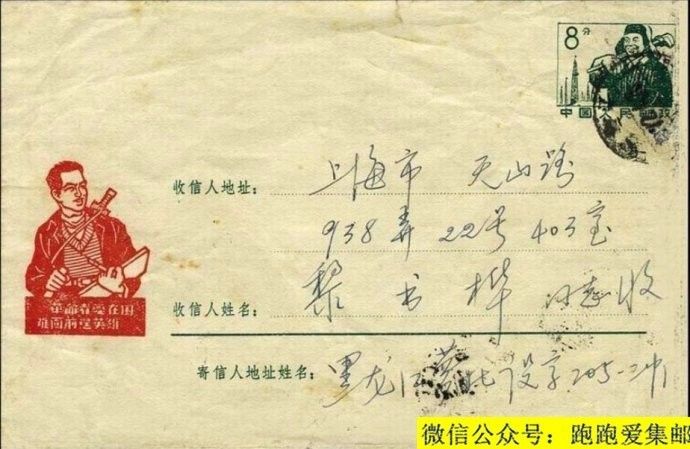 8分
中国人民邮政
收信人地址：上海市 天山路
938弄 22号 403室
收信人姓名：黎书桦 同志收
革命者要在困
难面前逞英雄
寄信人地址姓名：黑龙江 字205-2
微信公众号：跑跑爱集邮